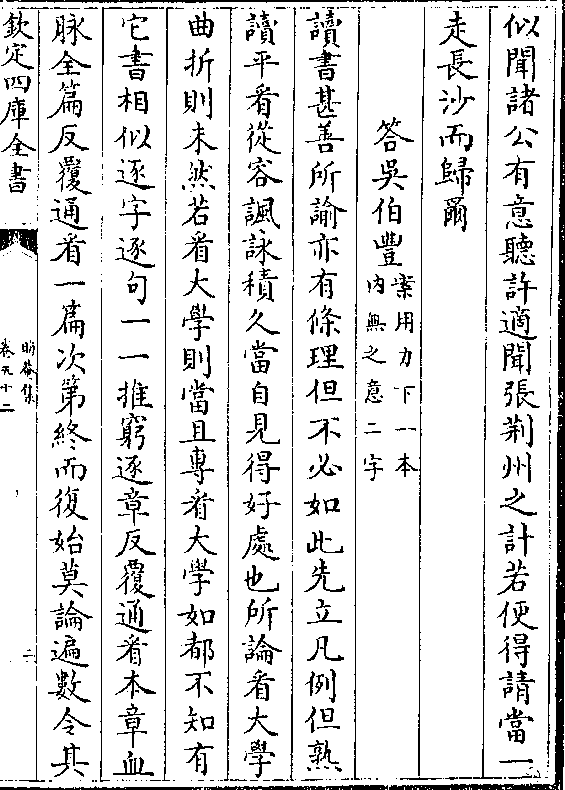 似聞諸公有意聽許適聞張荆州之計若便得請當一
走長沙而歸爾
答吳伯豐案用力下一本
内無之意二字
讀書甚善所諭亦有條理但不必如此先立凡例但熟
讀平看從容諷詠積久當自見得好處也所論看大學
曲折則未然若看大學則當且專看大學如都不知有
它書相似逐字逐句一一推窮逐章反覆通看本章血
脉全篇反覆通看一篇次第終而復始莫論遍數令其
欽定四庫全書
晦菴集
卷五十二
二